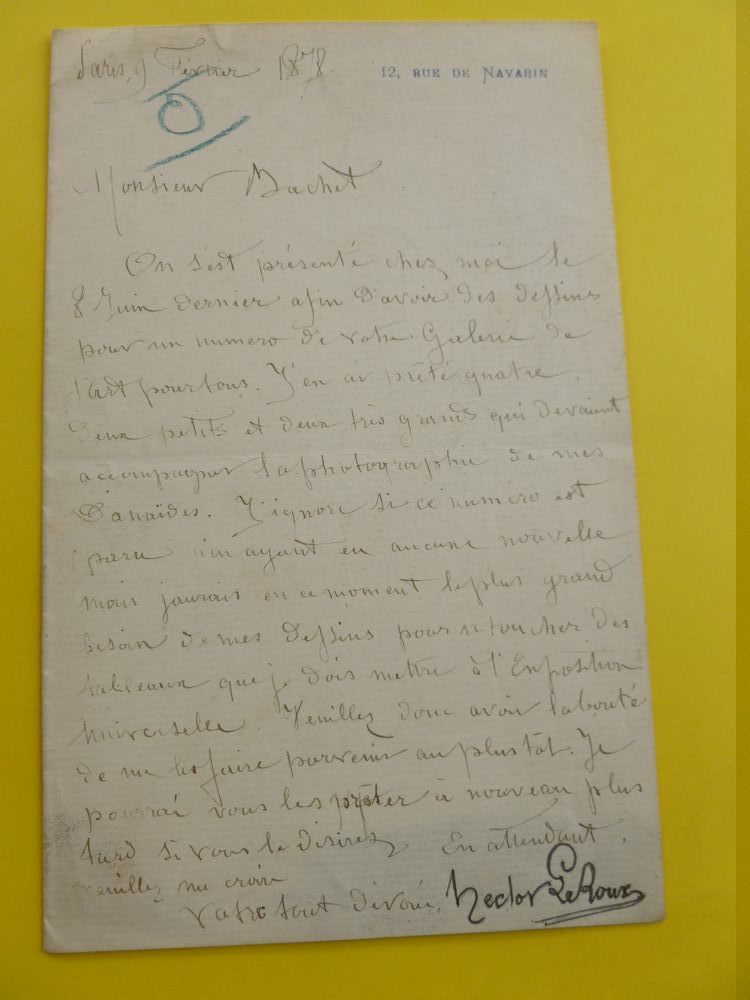 Paris, 9 Février 1878. 12, RUE DE NAVARIN
Monsieur Bachet
On s'est présenté chez moi le
8 Juin dernier afin d'avoir des dessins
pour un numero de votre Galerie de
l'art pour tous. J'en ai prêté quatre.
Deux petits et deux très grands qui devaient
accompagner la photographie de mes
Danaïdes. J'ignore si ce numero est
paru n'en ayant eu aucune nouvelle
mais j'aurais en ce moment le plus grand
besoin de mes dessins pour retoucher des
tableaux que je dois mettre à l'Exposition
Universelle. Veuillez donc avoir la bonté
de me les faire parvenir au plus tôt. Je
pourrai vous les prêter à nouveau plus
tard si vous le désirez En attendant,
veuillez me croire
Votre tout dévoué, Hector Le Roux